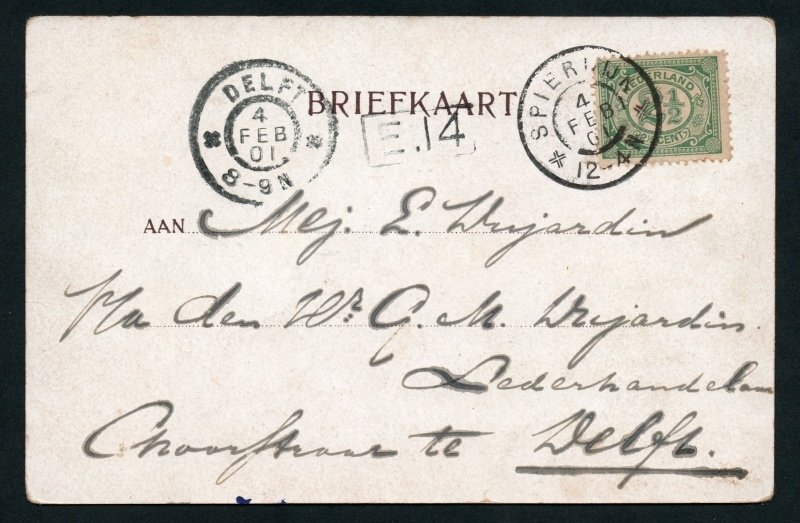 DELFT
4
FEB
01
8-9N
BRIEFKAART
E.14
SPIERDIJK
4
FEB
12-4N
NEDERLAND
2½
CENT
AAN Mej. E. Dujardin
p/a den Hr. G. M. Dujardin.
Lederhandelaar
Choorstraat te Delft.